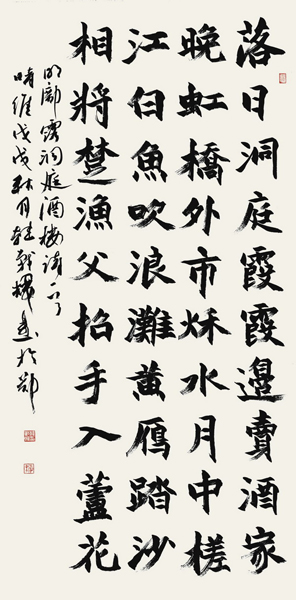 落日洞庭霞霞邊賣酒家
晚虹橋外市秋水月中槎
江白魚吹浪灘黃雁踏沙
相將楚漁父招手入蘆花
明鄺露洞庭酒樓詩一首
時維戊戌秋月書於鄂